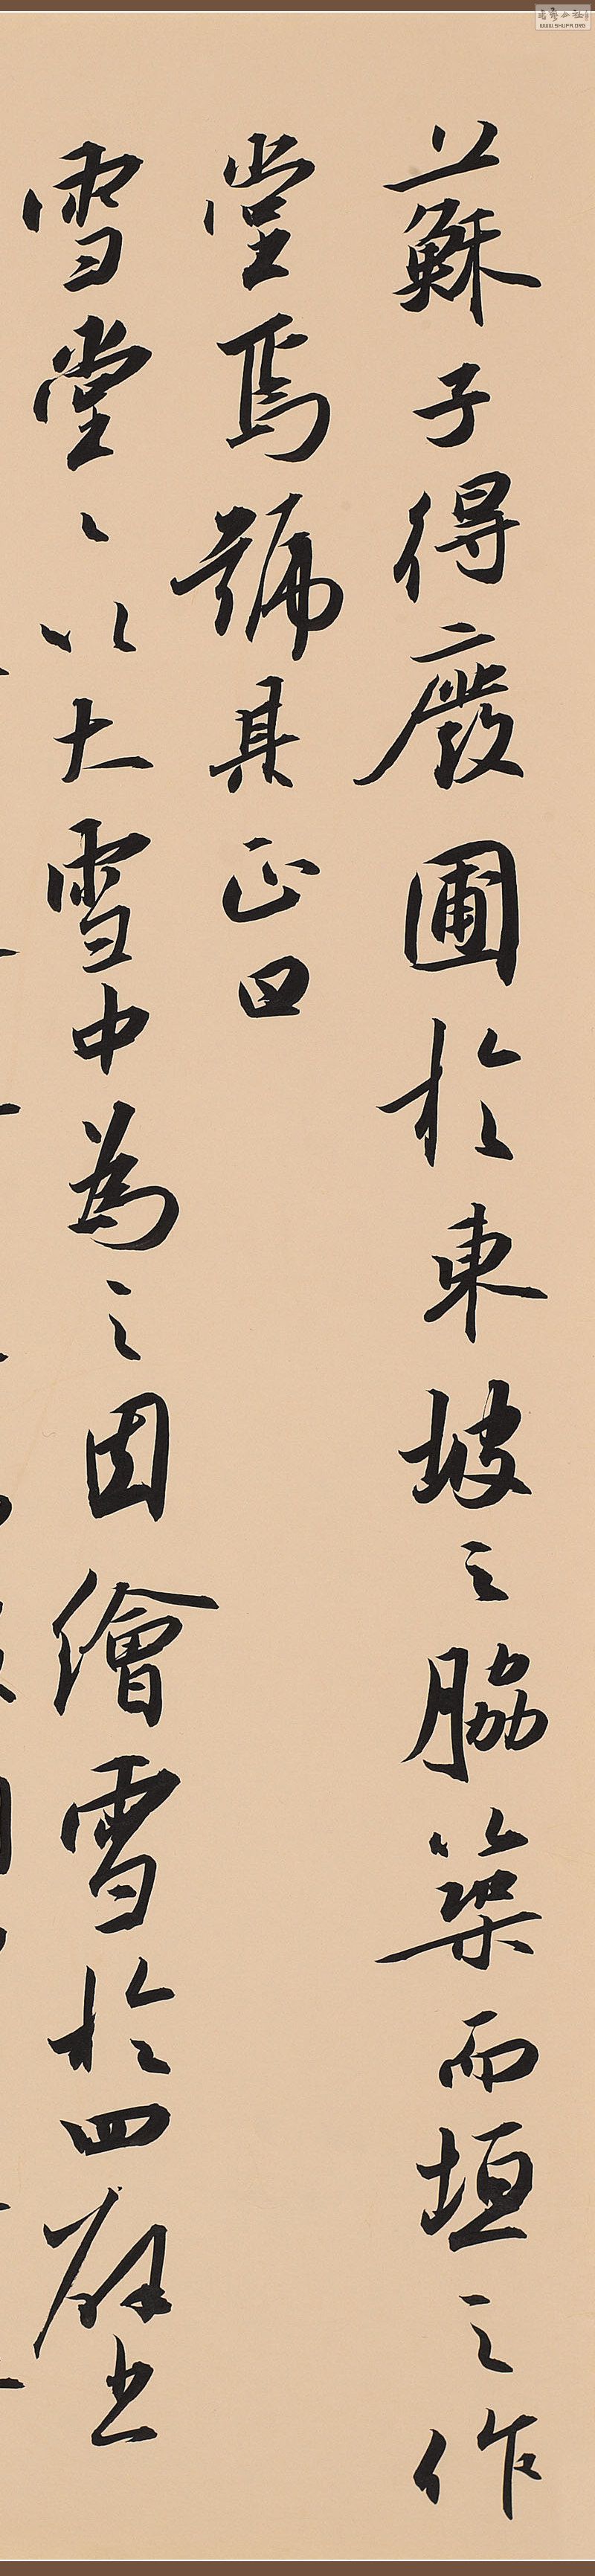 蘇子得廢圃於東坡之脇築而垣之作
堂焉號其正曰
雪堂〻以大雪中為之因繪雪於四壁
WWW.SHUFA.ORG